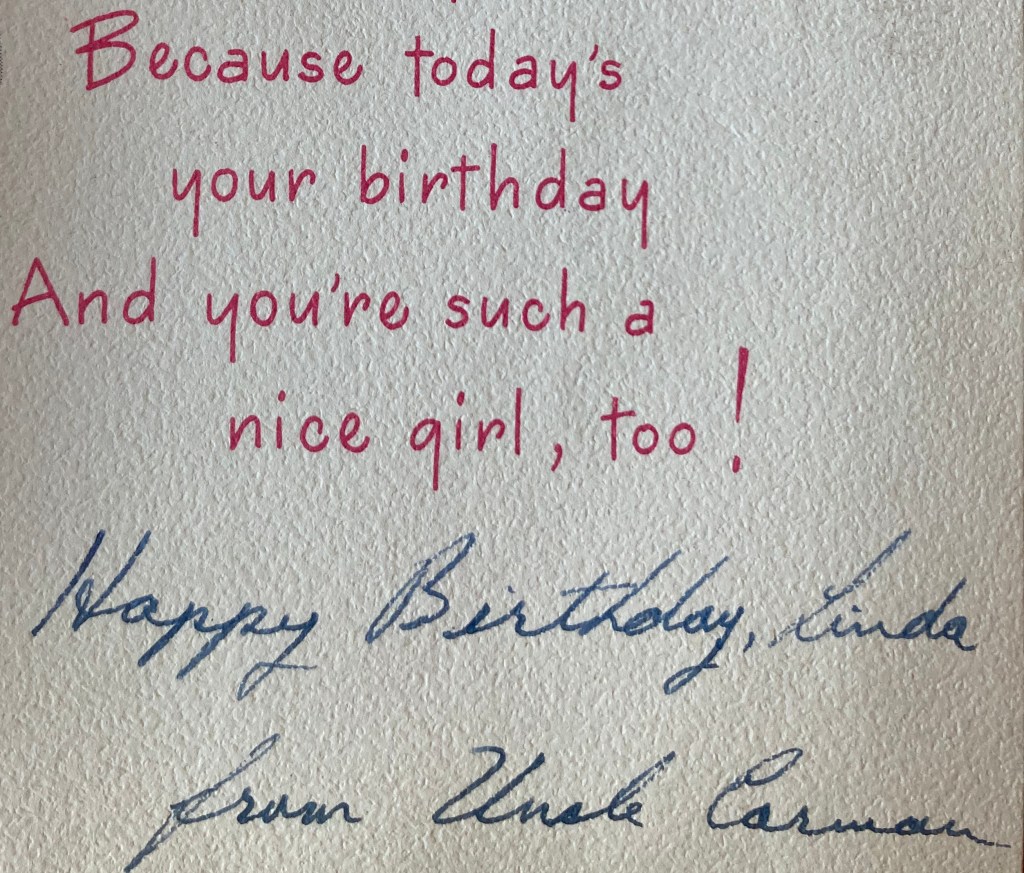 Because today's
your birthday
And you're such a
nice girl, too!
Happy Birthday, Linda
from Uncle Carman